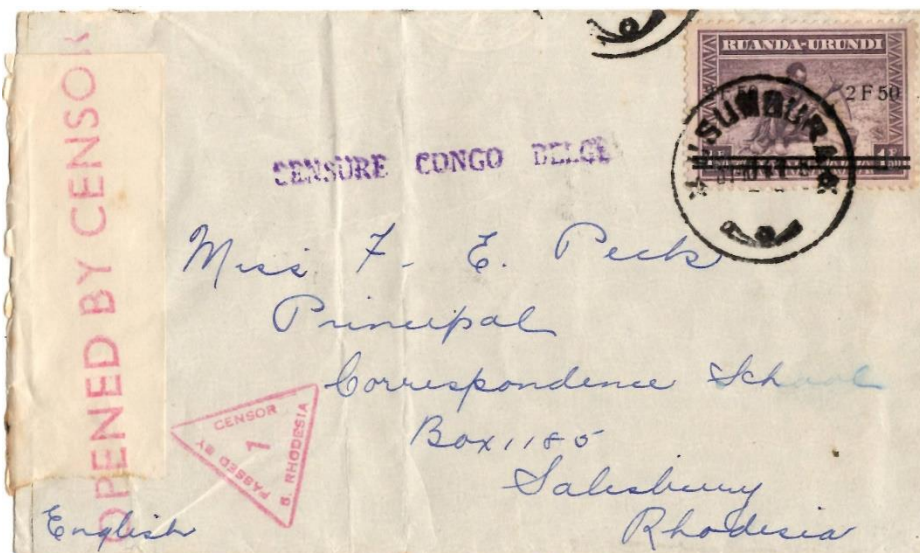 OPENED BY CENSOR
RUANDA-URUNDI
2 F 50
USUMBURA
CENSURE CONGO BELGE
Miss F. E. Peck
Principal
Correspondence School
Box 1185
Salesbury
Rhodesia
PASSED BY CENSOR
1
S. RHODESIA
English